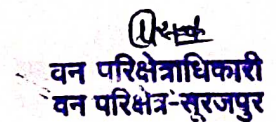 वन परिक्षेत्राधिकारी
वन परिक्षेत्र-सूरजपुर